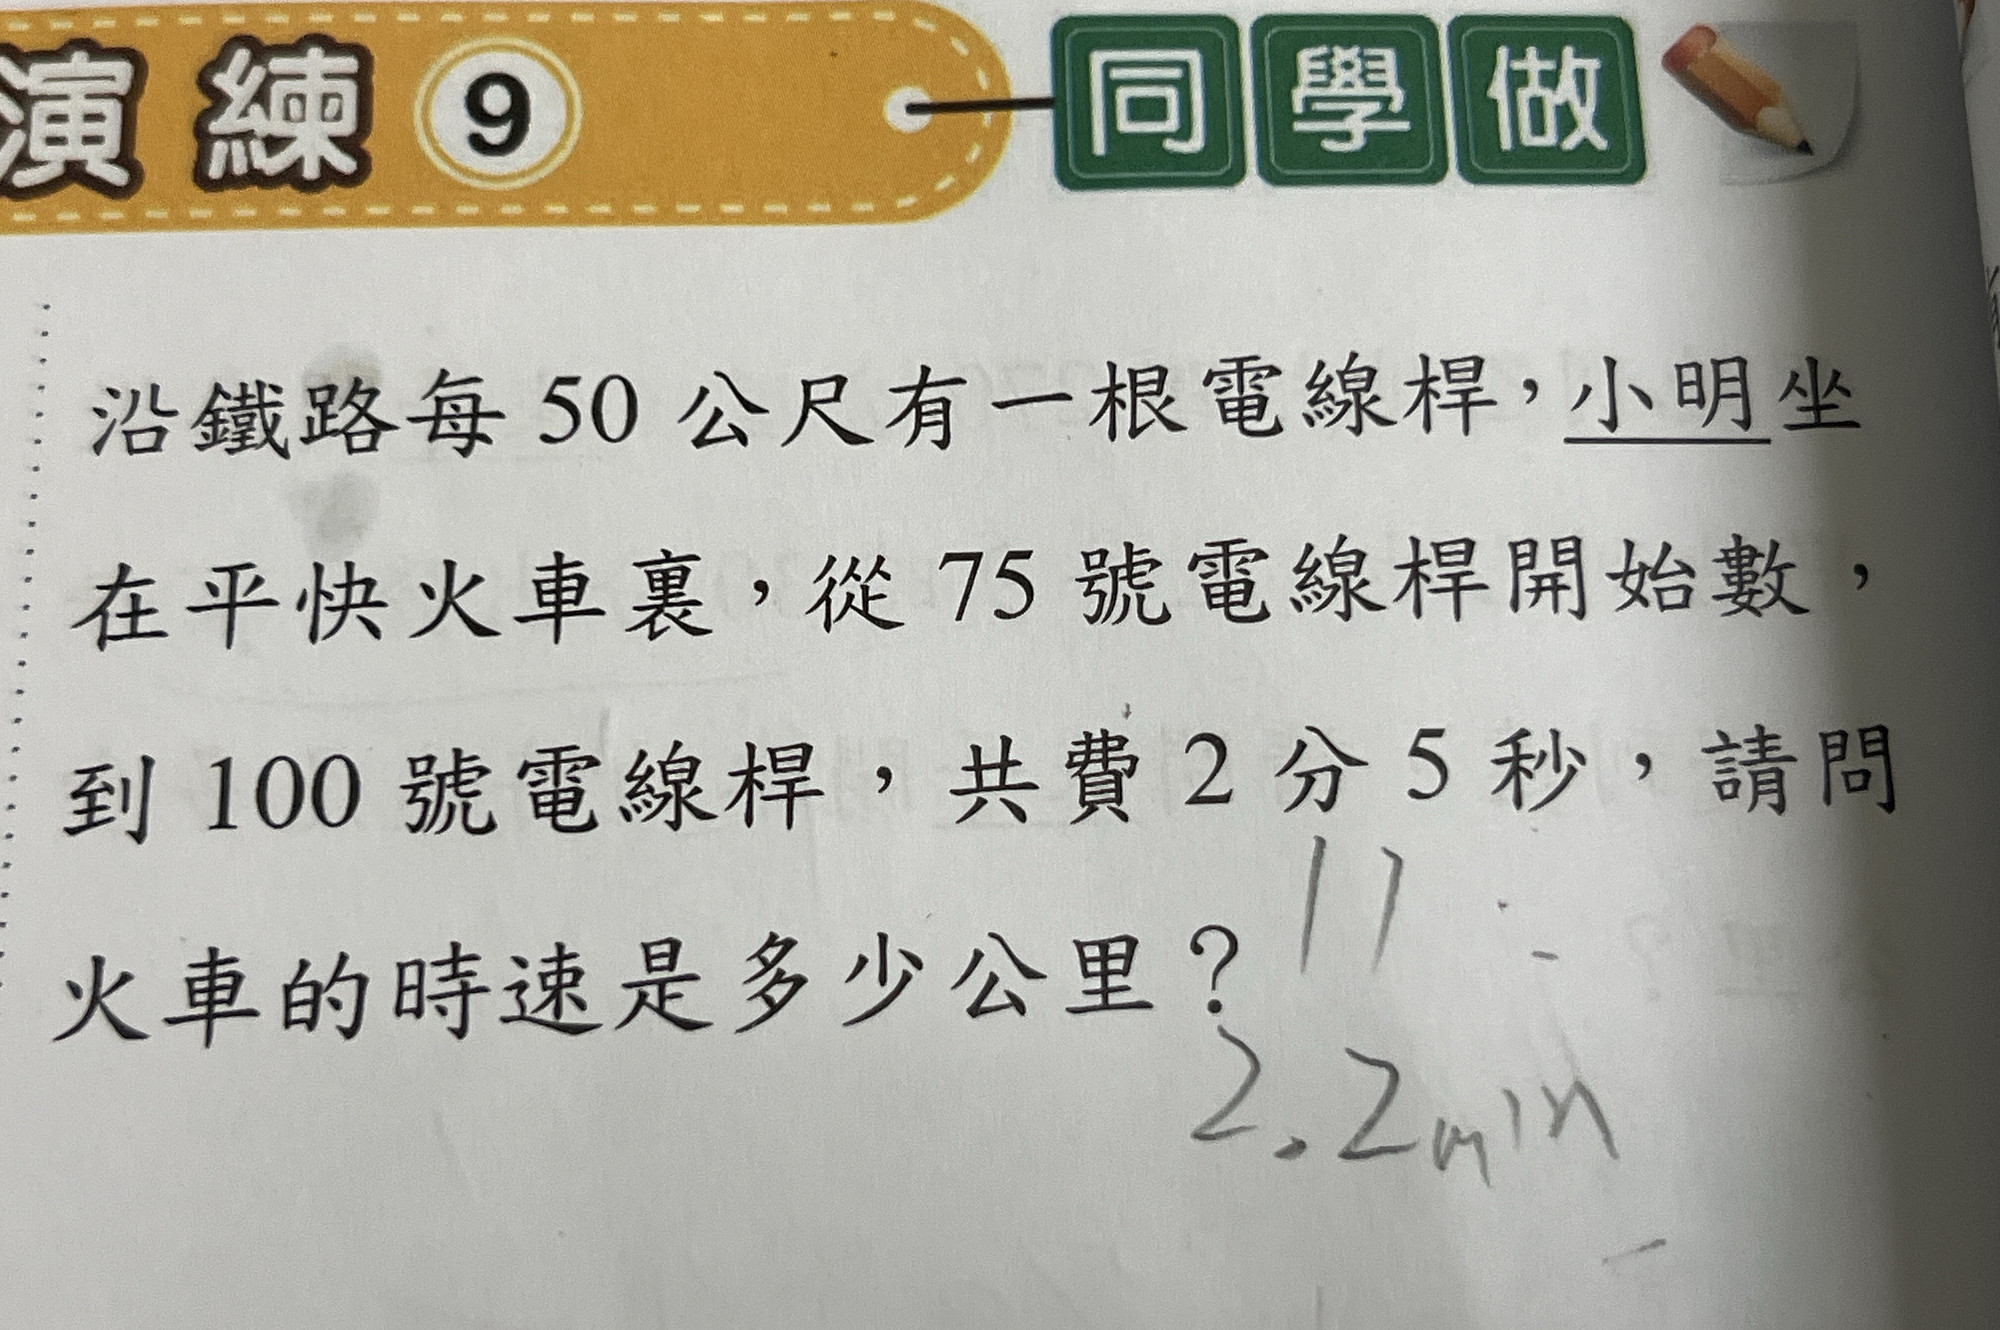 演練 9 同學做
沿鐵路每 50 公尺有一根電線桿，小明坐
在平快火車裏，從 75 號電線桿開始數，
到 100 號電線桿，共費 2 分 5 秒，請問
火車的時速是多少公里？
2.2min